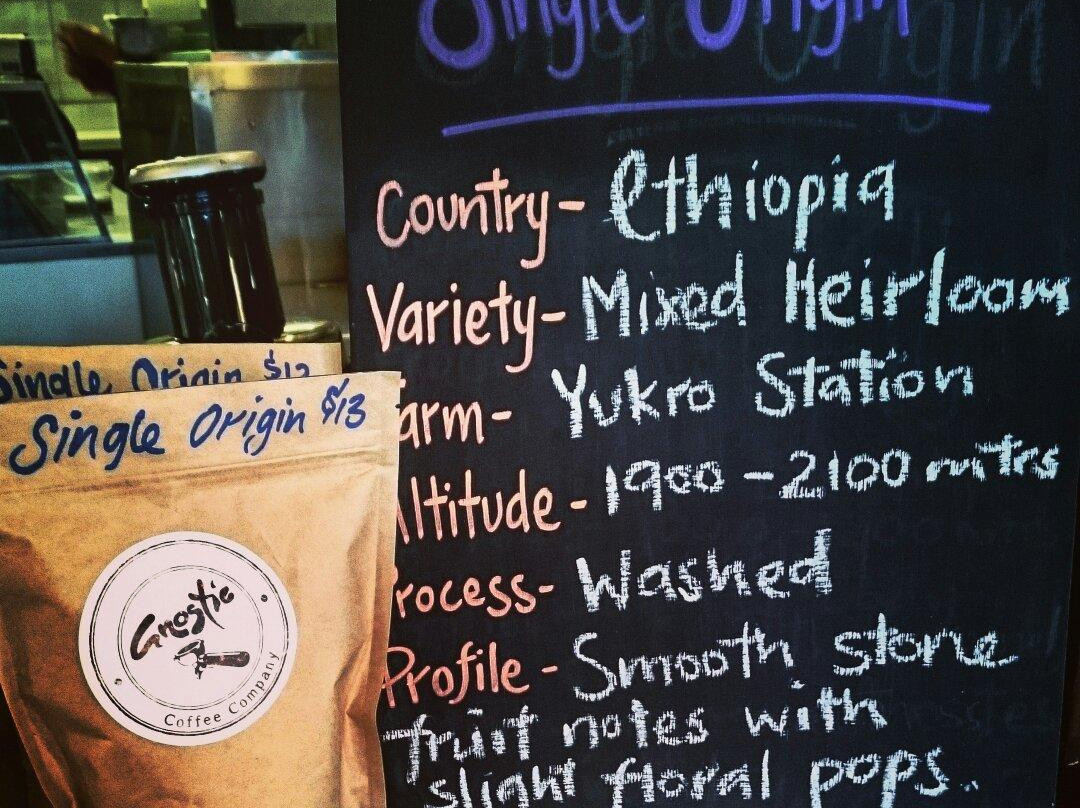 Single Origin
Country - Ethiopia
Variety - Mixed Heirloom
Farm - Yukro Station
Altitude - 1900 - 2100 mtrs
Process - Washed
Profile - Smooth stone
fruit notes with
slight floral pops.
Single Origin $13
Single Origin $13
Gnostic
Coffee Company